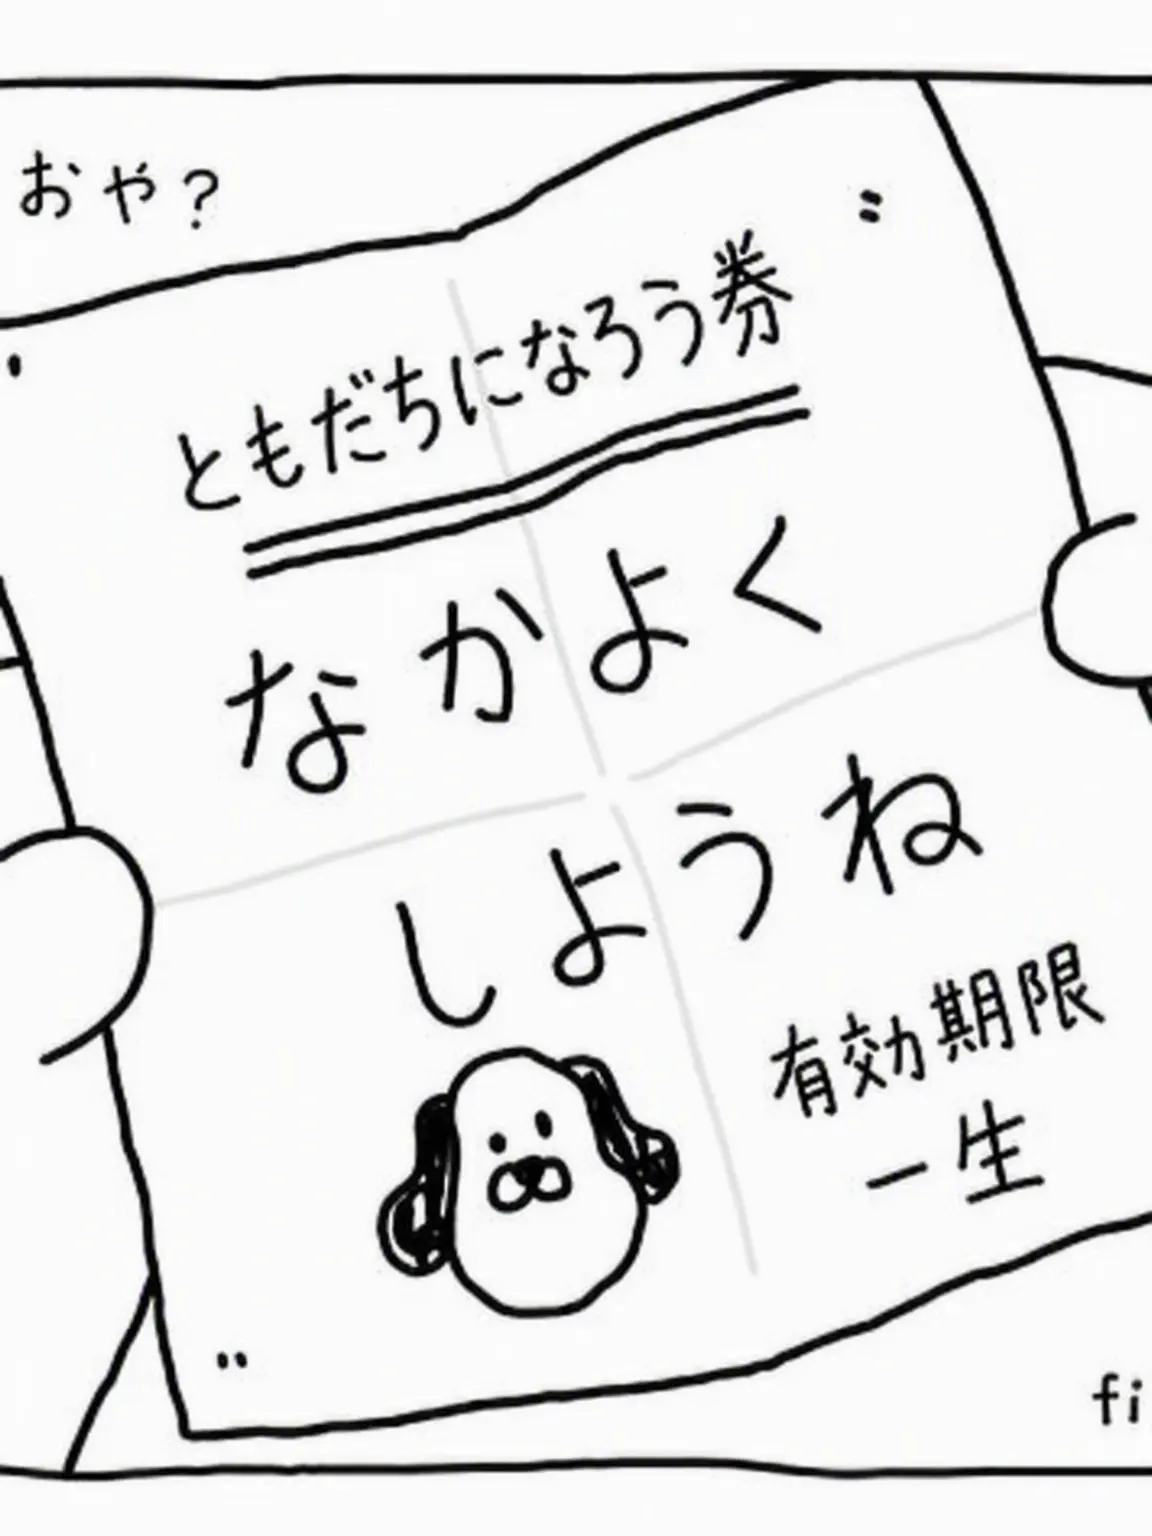 おや?
ともだちになろう券
なかよく
しようね
有効期限
一生
fi